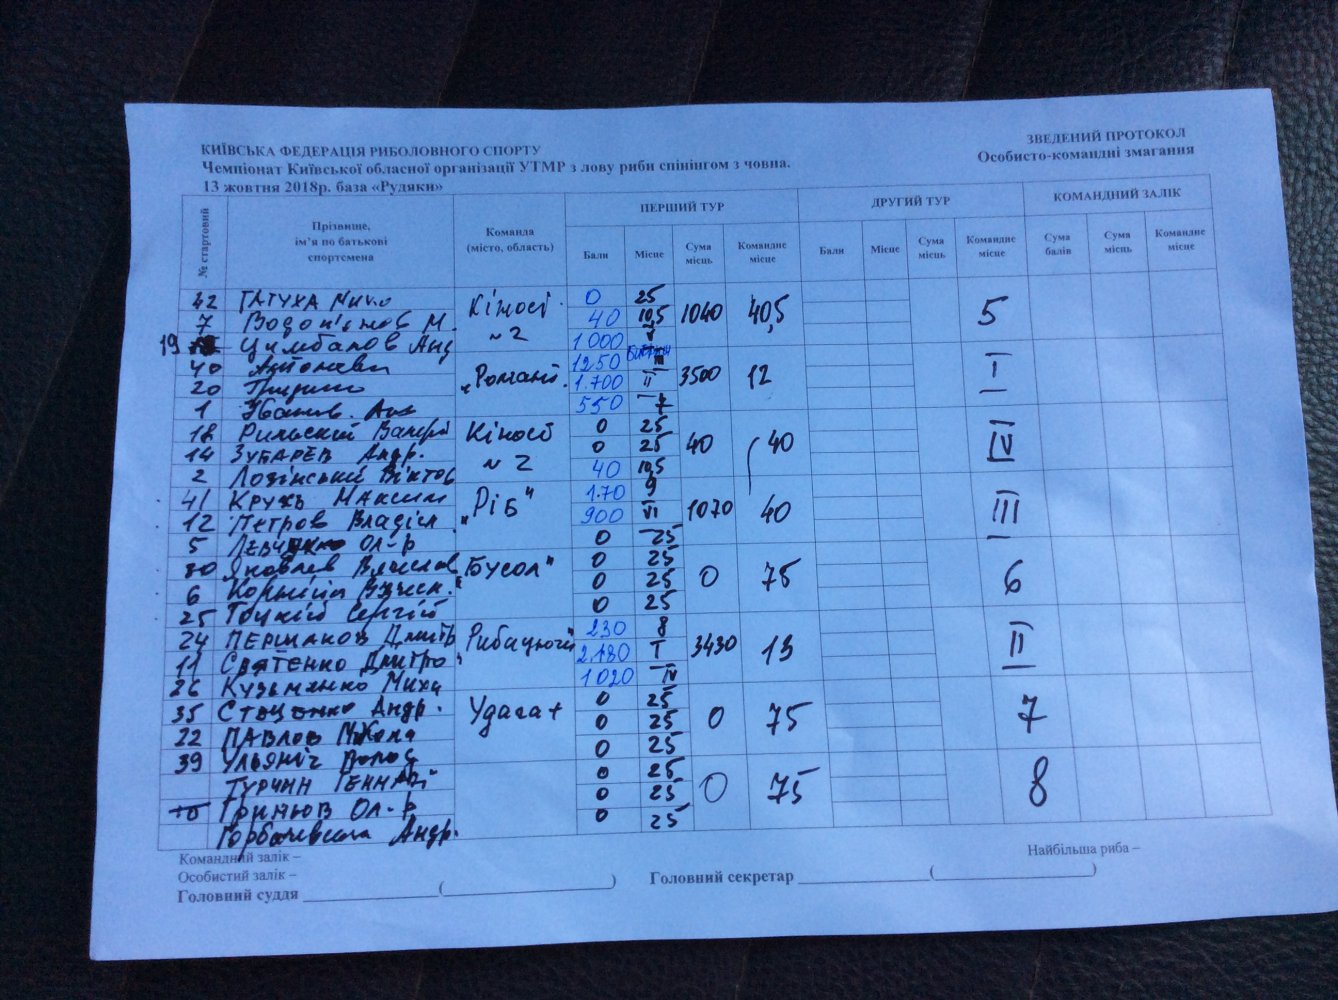 КИЇВСЬКА ФЕДЕРАЦІЯ РИБОЛОВНОГО СПОРТУ
ЗВЕДЕНИЙ ПРОТОКОЛ
Чемпіонат Київської обласної організації УТМР з лову риби спінінгом з човна.
Особисто-командні змагання
13 жовтня 2018р. база «Рудяки»
№ стартовий Прізвище, ім'я по батькові спортсмена Команда (місто, область) ПЕРШИЙ ТУР ДРУГИЙ ТУР КОМАНДНИЙ ЗАЛІК
Бали Місце Сума місць Командне місце Бали Місце Сума місць Командне місце Сума балів Сума місць Командне місце
42 ТАТУХА 0 25
7 М. Кіносі №2 40 10,5 1040 40,5 5
19 Цимбалов Анд 1000 V
40 1250 III
20 "Романі 1.700 II 3500 12 I
1 550 7
18 Рильский Валерій Кіносі 0 25
14 ЗУБАРЕВ Андр. №2 0 25 40 40 IV
2 Лозінський Віктор 40 10,5
41 КРУХЬ МАКСИМ 170 9
12 ПЕТРОВ Владісл "Ріб" 900 VI 1070 40 III
5 Ол-р 0 25
30 Яковлев Вячеслав 0 25
6 "Бусол" 0 25 0 75 6
25 Тоцкій Сергій 0 25
24 ПЕРШАКОВ Дмитр 230 8
11 СВЯТЕНКО Дмитро 2.180 I 3430 13 II
26 Кузьменко Миха 1020 IV
35 Стоценко Андр. 0 25
22 ПАВЛОВ Микола Удача+ 0 25 0 75 7
39 Ульяніч 0 25
ТУРЧИН ГЕННАДІ 0 25
10 Гриньов Ол-р 0 25 0 75 8
Горбачевский Андр. 0 25
Командний залік –
Найбільша риба –
Особистий залік –
Головний суддя ________________(____________________)
Головний секретар ________________(____________________)